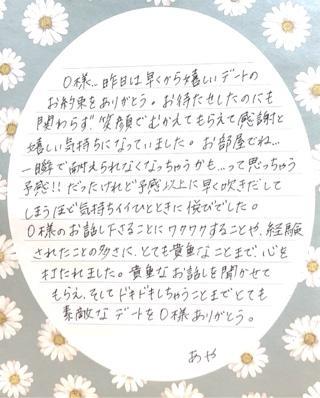 O様... 昨日は早くから嬉しいデートの
お約束をありがとう。お待たせしたのにも
関わらず、笑顔でむかえてもらえて感謝と
嬉しい気持ちになっていました。お部屋でね...
一瞬で耐えられなくなっちゃうかも...って思っちゃう
予感!! だったけれど予感以上に早く吹きだして
しまうほど気持ちイイひとときに悦びでした。
O様のお話し下さることにワクワクすることや、経験
されたことの多さに、とても貴重なことまで、心を
打たれました。貴重なお話しを聞かせて
もらえ、そしてドキドキしちゃうことまでとても
素敵なデートをO様ありがとう。
あや